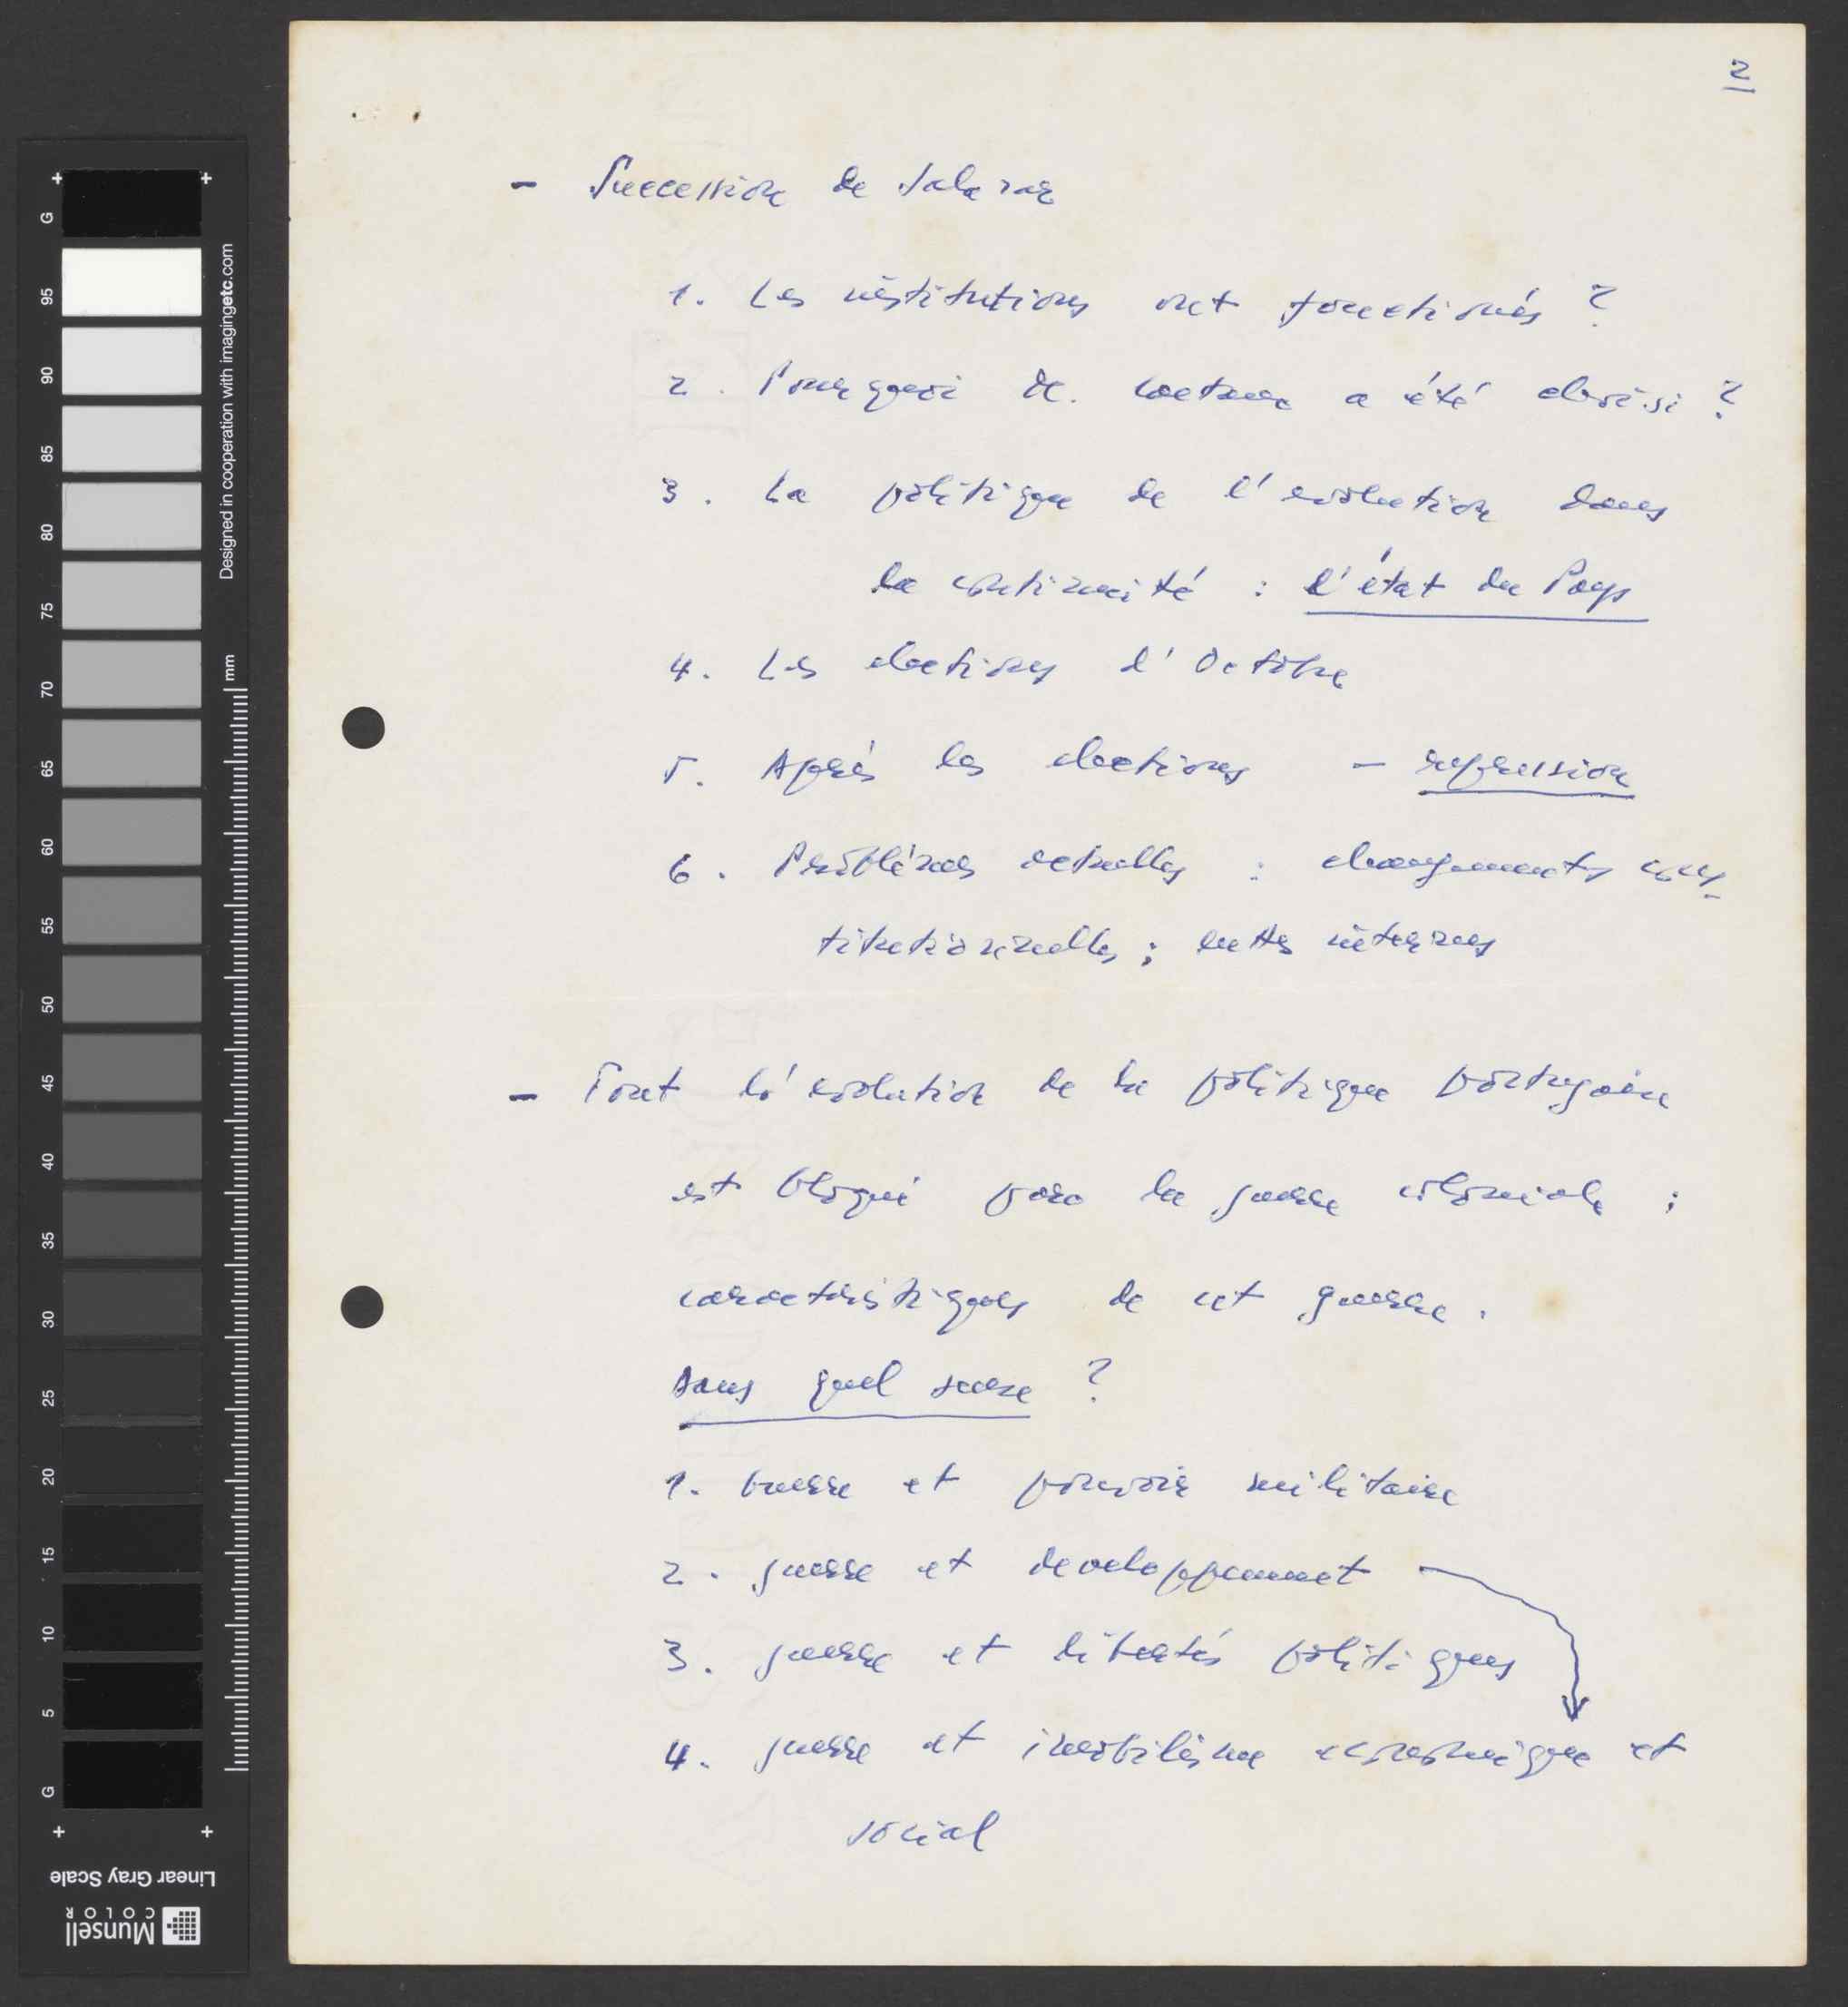 2
- Succession de Salazar
1. Les institutions ont fonctionés ?
2. Pourquoi M. Caetano a été choisi ?
3. La politique de l'evolution dans
la continuité : l'état du Pays
4. Les elections d'Octobre
5. Après les elections - repression
6. Problémes actuelles : changements cons-
titutionnelles ; luttes internes
- Tout l'evolution de la politique portugaise
est bloqué para la guerre coloniale ;
caracteristiques de cet guerre.
Dans quel sense ?
1. Guerre et pouvoir militaire
2. guerre et developpement
3. guerre et libertés politiques
4. guerre et imobilisme economique et
social
G
95
90
85
80
75
70
65
60
55
50
45
40
35
30
25
20
15
10
5
G
Designed in cooperation with imagingetc.com
mm
Linear Gray Scale
Munsell
COLOR